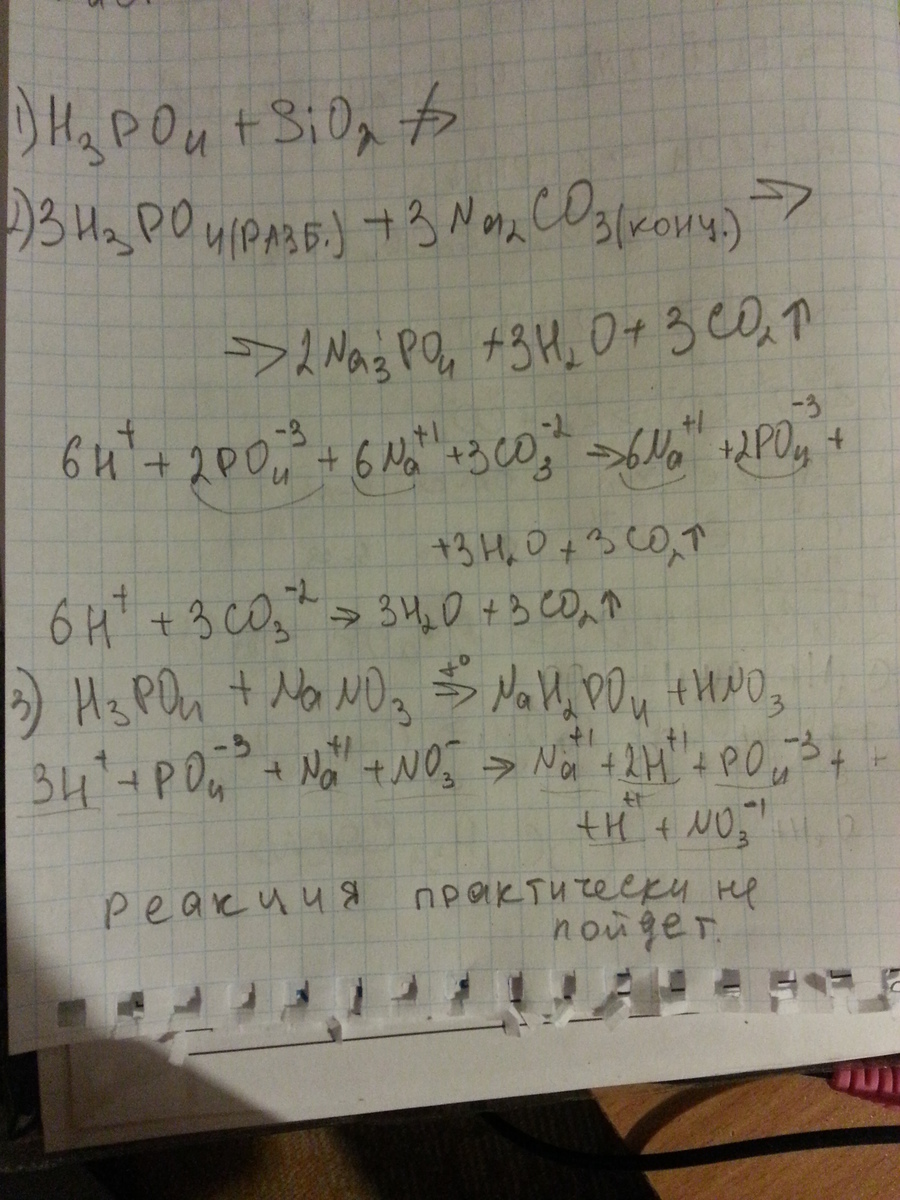 1) H₃PO₄ + SiO₂ ↛
2) 3H₃PO₄(РАЗБ.) + 3Na₂CO₃(конц.) →
→ 2Na₃PO₄ + 3H₂O + 3CO₂↑
6H⁺ + 2PO₄⁻³ + 6Na⁺¹ + 3CO₃⁻² → 6Na⁺¹ + 2PO₄⁻³ +
+ 3H₂O + 3CO₂↑
6H⁺ + 3CO₃⁻² → 3H₂O + 3CO₂↑
3) H₃PO₄ + NaNO₃ →(t°) NaH₂PO₄ + HNO₃
3H⁺ + PO₄⁻³ + Na⁺¹ + NO₃⁻ → Na⁺¹ + 2H⁺¹ + PO₄⁻³ +
+ H⁺¹ + NO₃⁻¹
реакция практически не
пойдет.